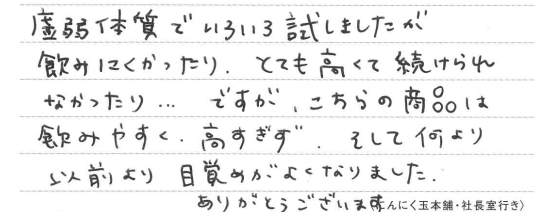 虚弱体質でいろいろ試しましたが
飲みにくかったり、とても高くて続けられ
なかったり… ですが、こちらの商品は
飲みやすく、高すぎず、そして何より
以前より 目覚めがよくなりました。
ありがとうございます
んにく玉本舗・社長室行き〉